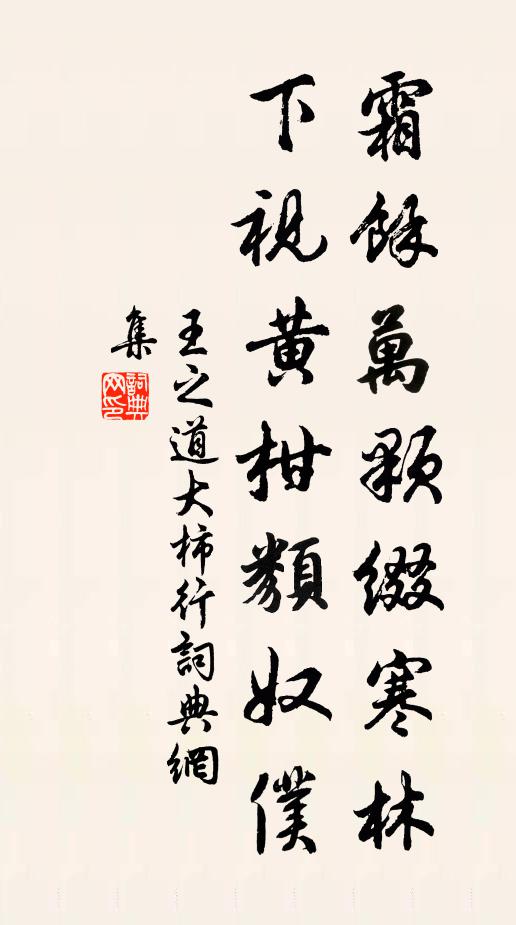 霜餘萬顆綴寒林
下視黃柑類奴僕
王之道大柿行詞典網
集
詞典网印